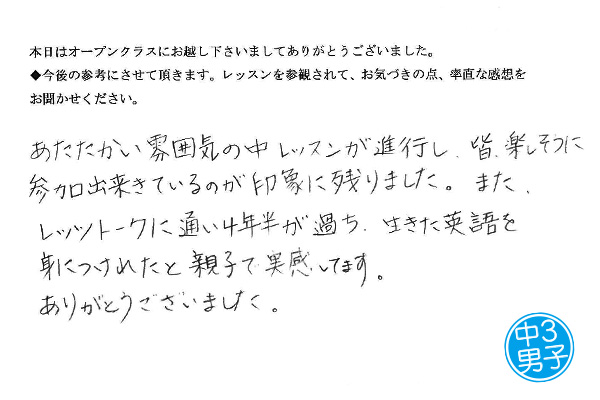 本日はオープンクラスにお越し下さいましてありがとうございました。
◆今後の参考にさせて頂きます。レッスンを参観されて、お気づきの点、率直な感想を
お聞かせください。
あたたかい雰囲気の中レッスンが進行し、皆、楽しそうに
参加出来きているのが印象に残りました。また、
レッツトークに通い4年半が過ち、生きた英語を
身につけれたと親子で実感してます。
ありがとうございました。
中3
男子